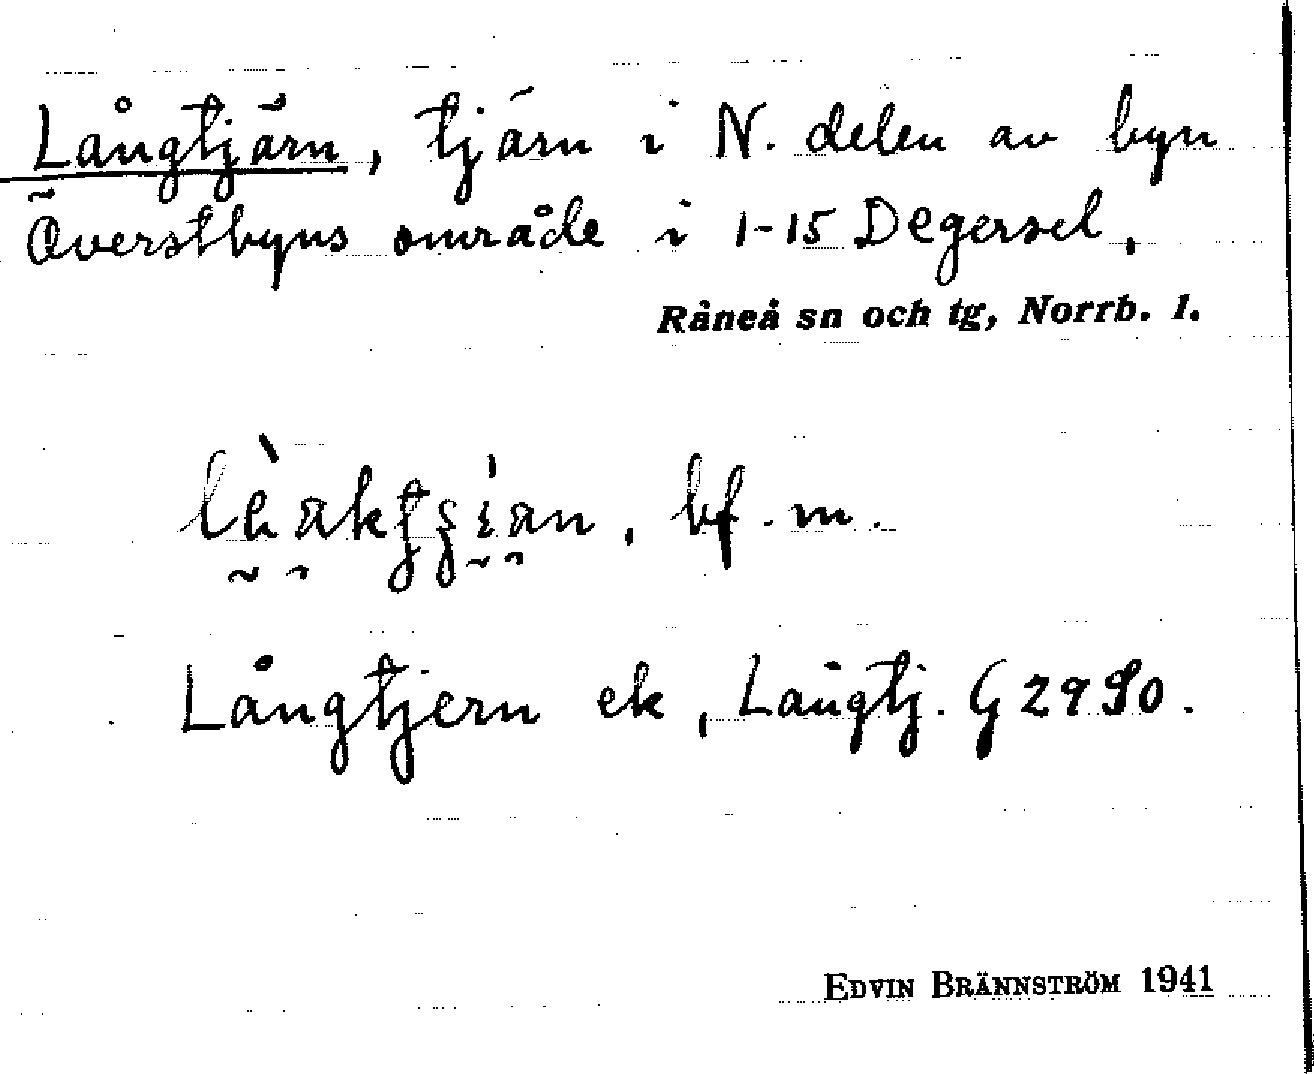 Långtjärn, tjärn i N. delen av byn
Överstbyns område i 1-15 Degersel.
Råneå sn och tg, Norrb. l.
bf. m.
Långtjern ek, Långtj. G 2990.
EDVIN BRÄNNSTRÖM 1941